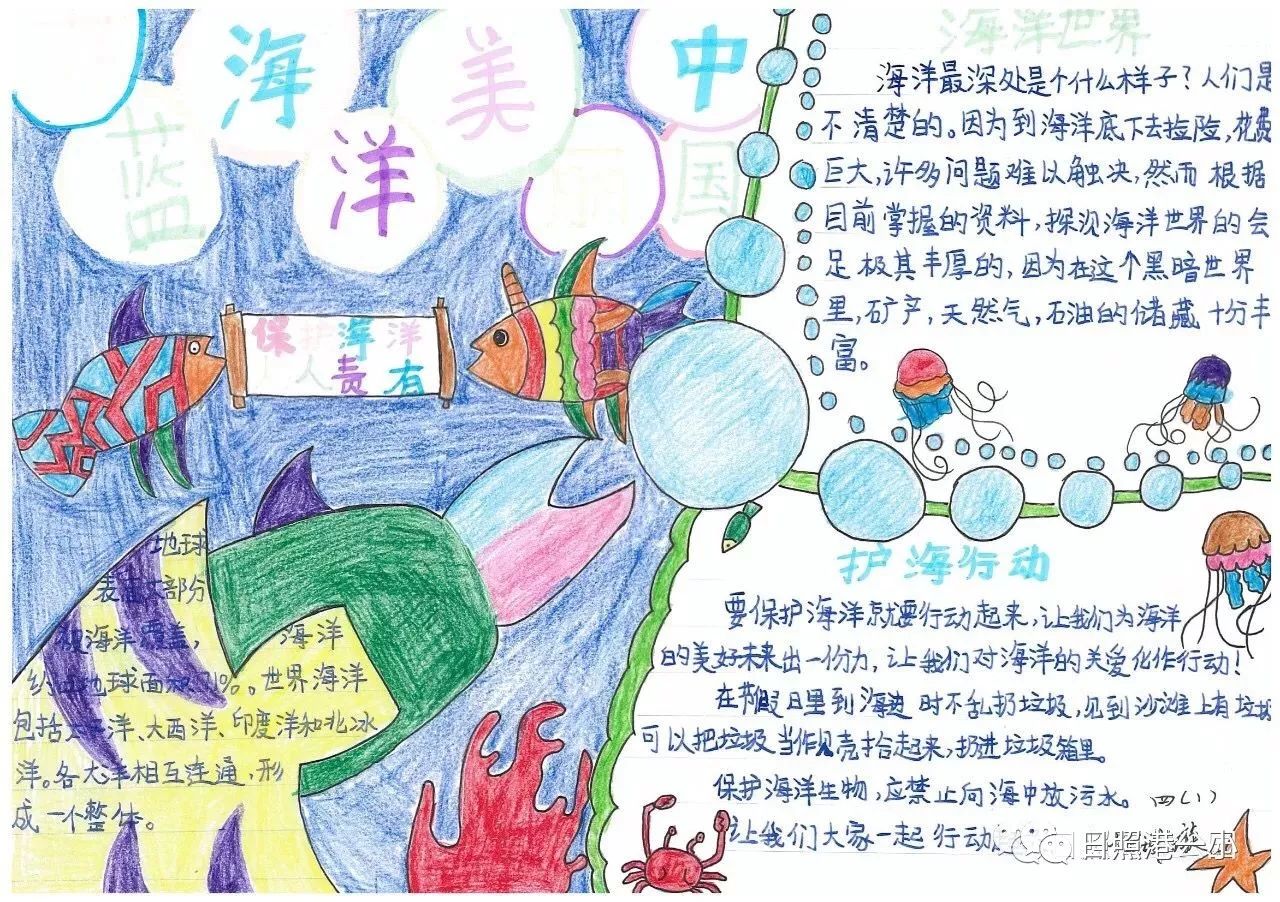 蓝海洋美丽中国
保护海洋
人人有责
海洋世界
海洋最深处是个什么样子？人们是
不清楚的。因为到海洋底下去捡险，花费
巨大，许多问题难以触决，然而根据
目前掌握的资料，探观海洋世界的会
足极其丰厚的，因为在这个黑暗世界
里，矿产，天然气，石油的储藏十分丰
富。
地球
表面大部分
被海洋覆盖，海洋
约占地球面积71%。世界海洋
包括太平洋、大西洋、印度洋和北冰
洋。各大洋相互连通，形
成一个整体。
护海行动
要保护海洋就要行动起来，让我们为海洋
的美好未来出一份力，让我们对海洋的关爱化作行动！
在节假日里到海边时不乱扔垃圾，见到沙滩上有垃圾
可以把垃圾当作贝壳拾起来，扔进垃圾箱里。
保护海洋生物，应禁止向海中放污水。四(1)
让我们大家一起行动
日照港二小